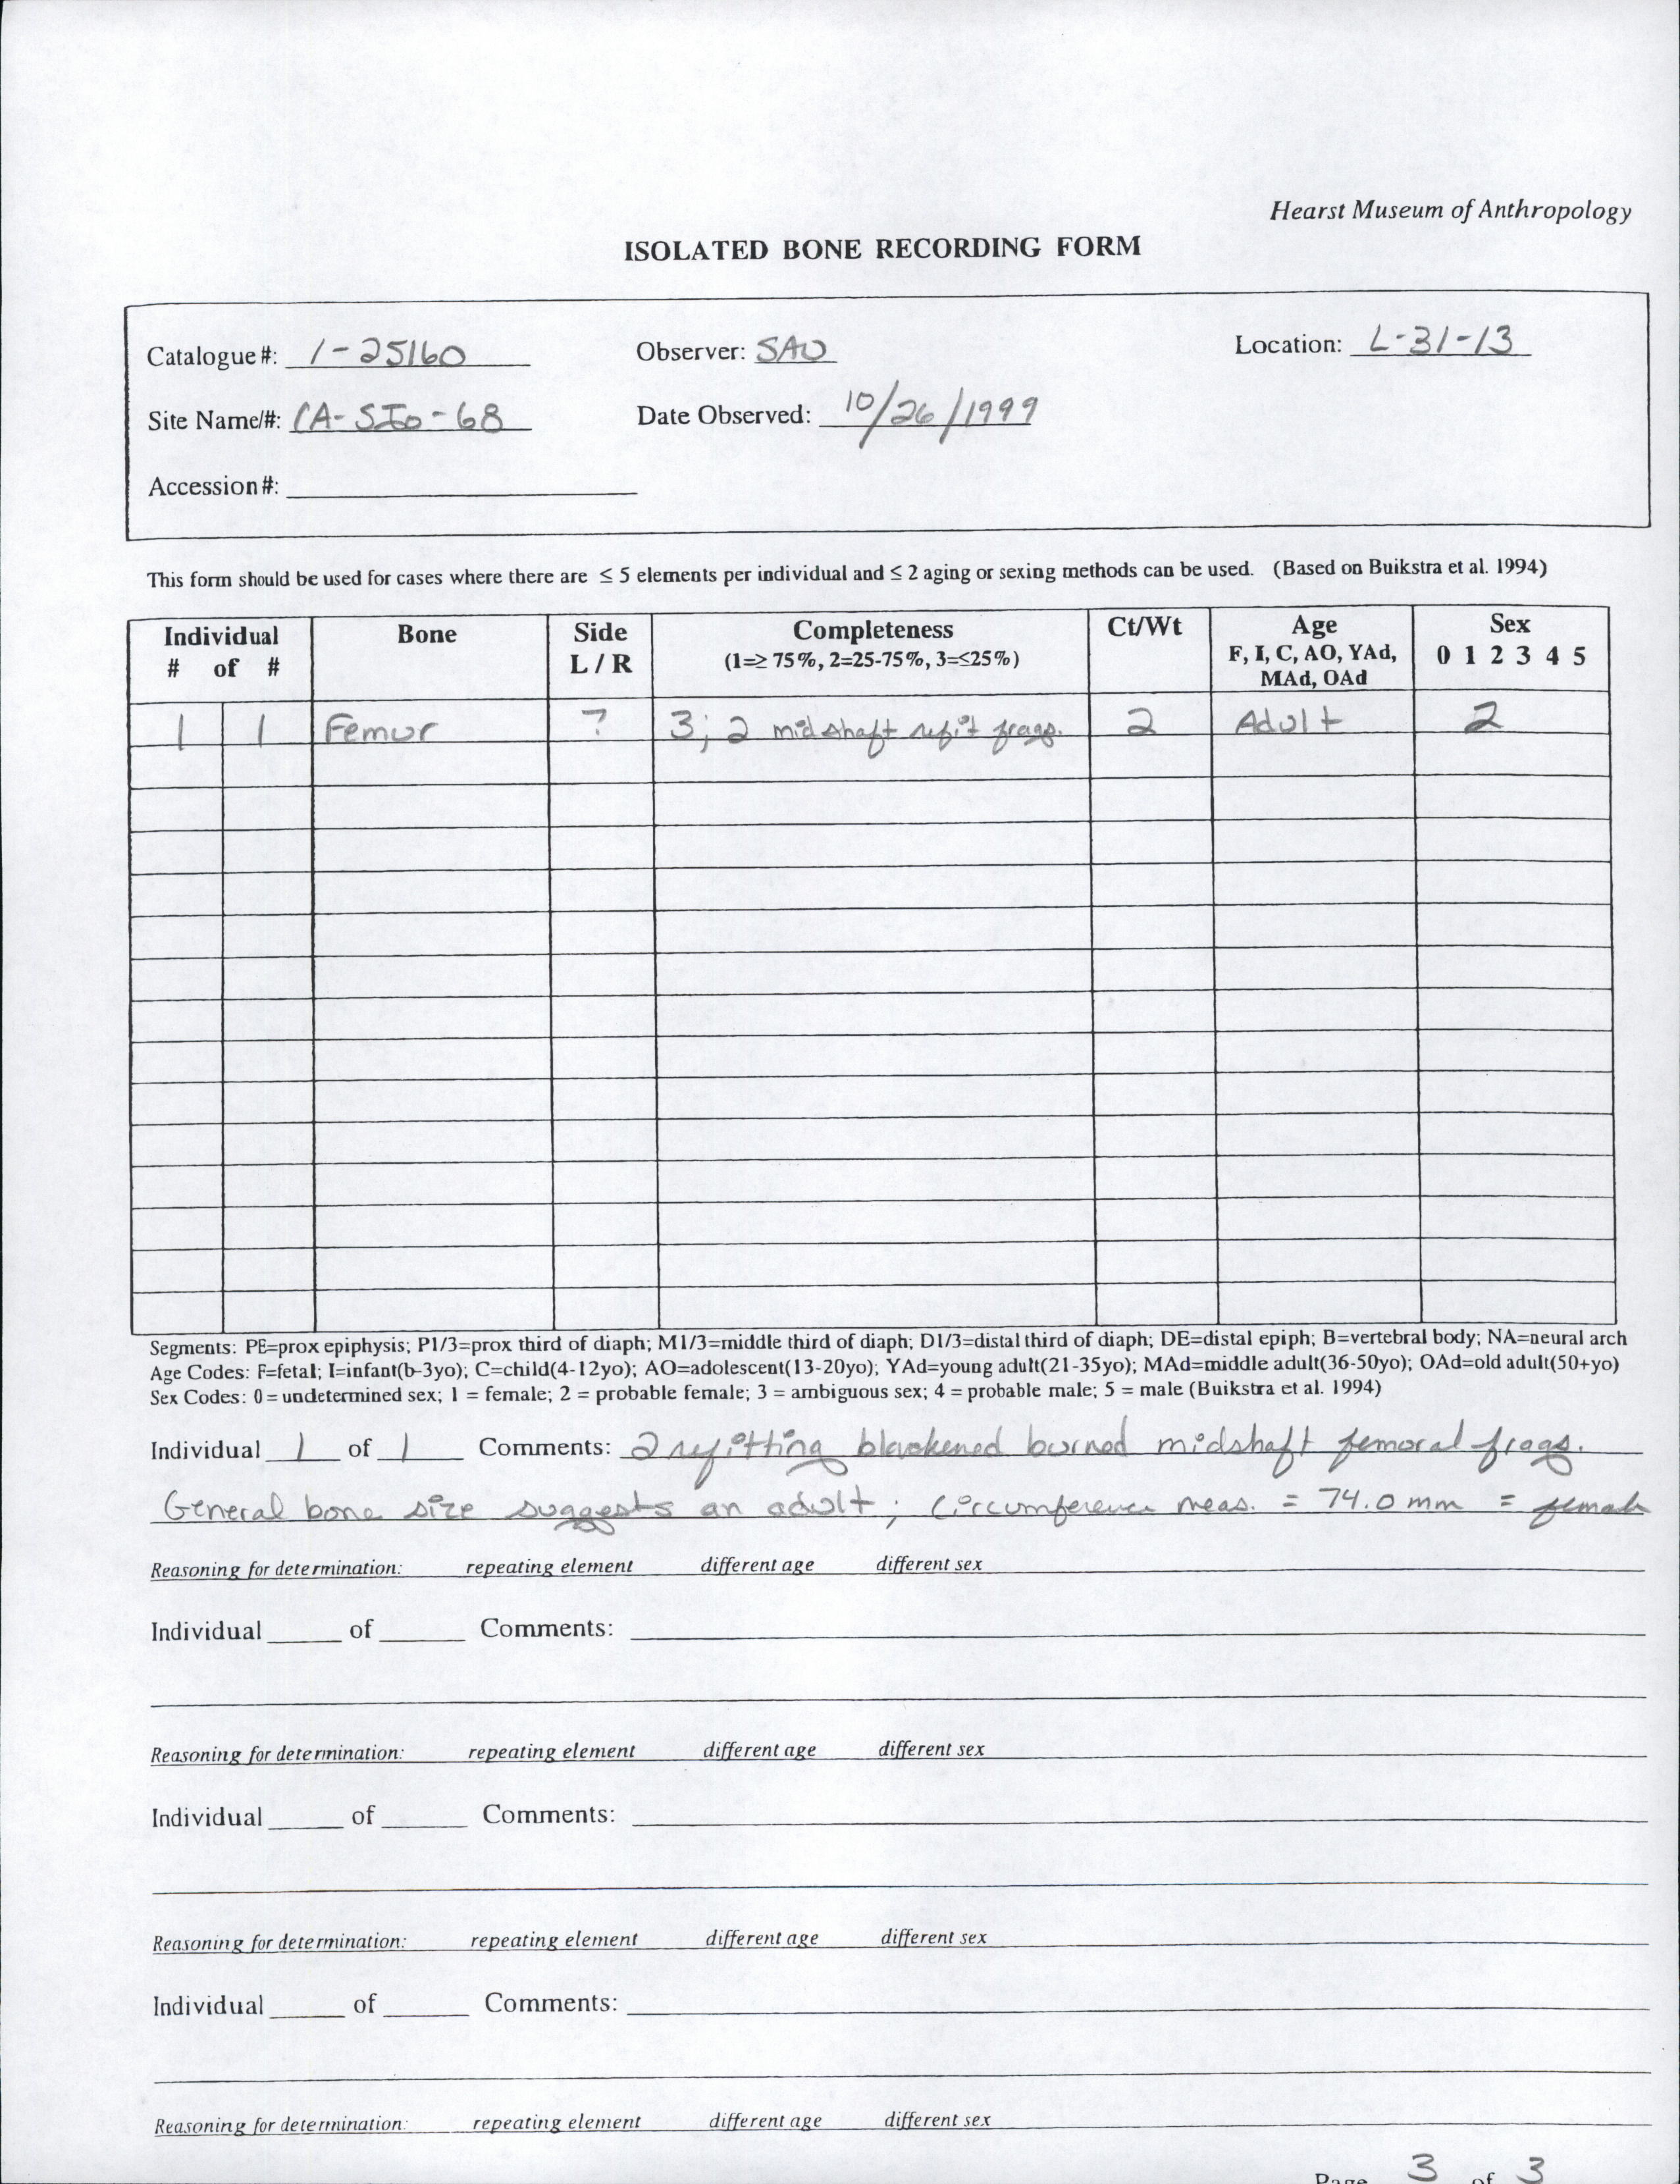 Hearst Museum of Anthropology
ISOLATED BONE RECORDING FORM
Catalogue #: 1-25160 Observer: SAO Location: L-31-13
Site Name/#: CA-SJo-68 Date Observed: 10/26/1999
Accession #:
This form should be used for cases where there are ≤ 5 elements per individual and ≤ 2 aging or sexing methods can be used. (Based on Buikstra et al. 1994)
Individual Bone Side Completeness Ct/Wt Age Sex
# of # L / R (1=≥ 75%, 2=25-75%, 3=≤25%) F, I, C, AO, YAd, 0 1 2 3 4 5
MAd, OAd
1 1 Femur ? 3; 2 midshaft refit frags. 2 Adult 2
Segments: PE=prox epiphysis; P1/3=prox third of diaph; M1/3=middle third of diaph; D1/3=distal third of diaph; DE=distal epiph; B=vertebral body; NA=neural arch
Age Codes: F=fetal; I=infant(b-3yo); C=child(4-12yo); AO=adolescent(13-20yo); YAd=young adult(21-35yo); MAd=middle adult(36-50yo); OAd=old adult(50+yo)
Sex Codes: 0 = undetermined sex; 1 = female; 2 = probable female; 3 = ambiguous sex; 4 = probable male; 5 = male (Buikstra et al. 1994)
Individual 1 of 1 Comments: 2 refitting blackened burned midshaft femoral frags.
General bone size suggests an adult; Circumference meas. = 74.0 mm = female
Reasoning for determination: repeating element different age different sex
Individual of Comments:
Reasoning for determination: repeating element different age different sex
Individual of Comments:
Reasoning for determination: repeating element different age different sex
Individual of Comments:
Reasoning for determination: repeating element different age different sex
Page 3 of 3